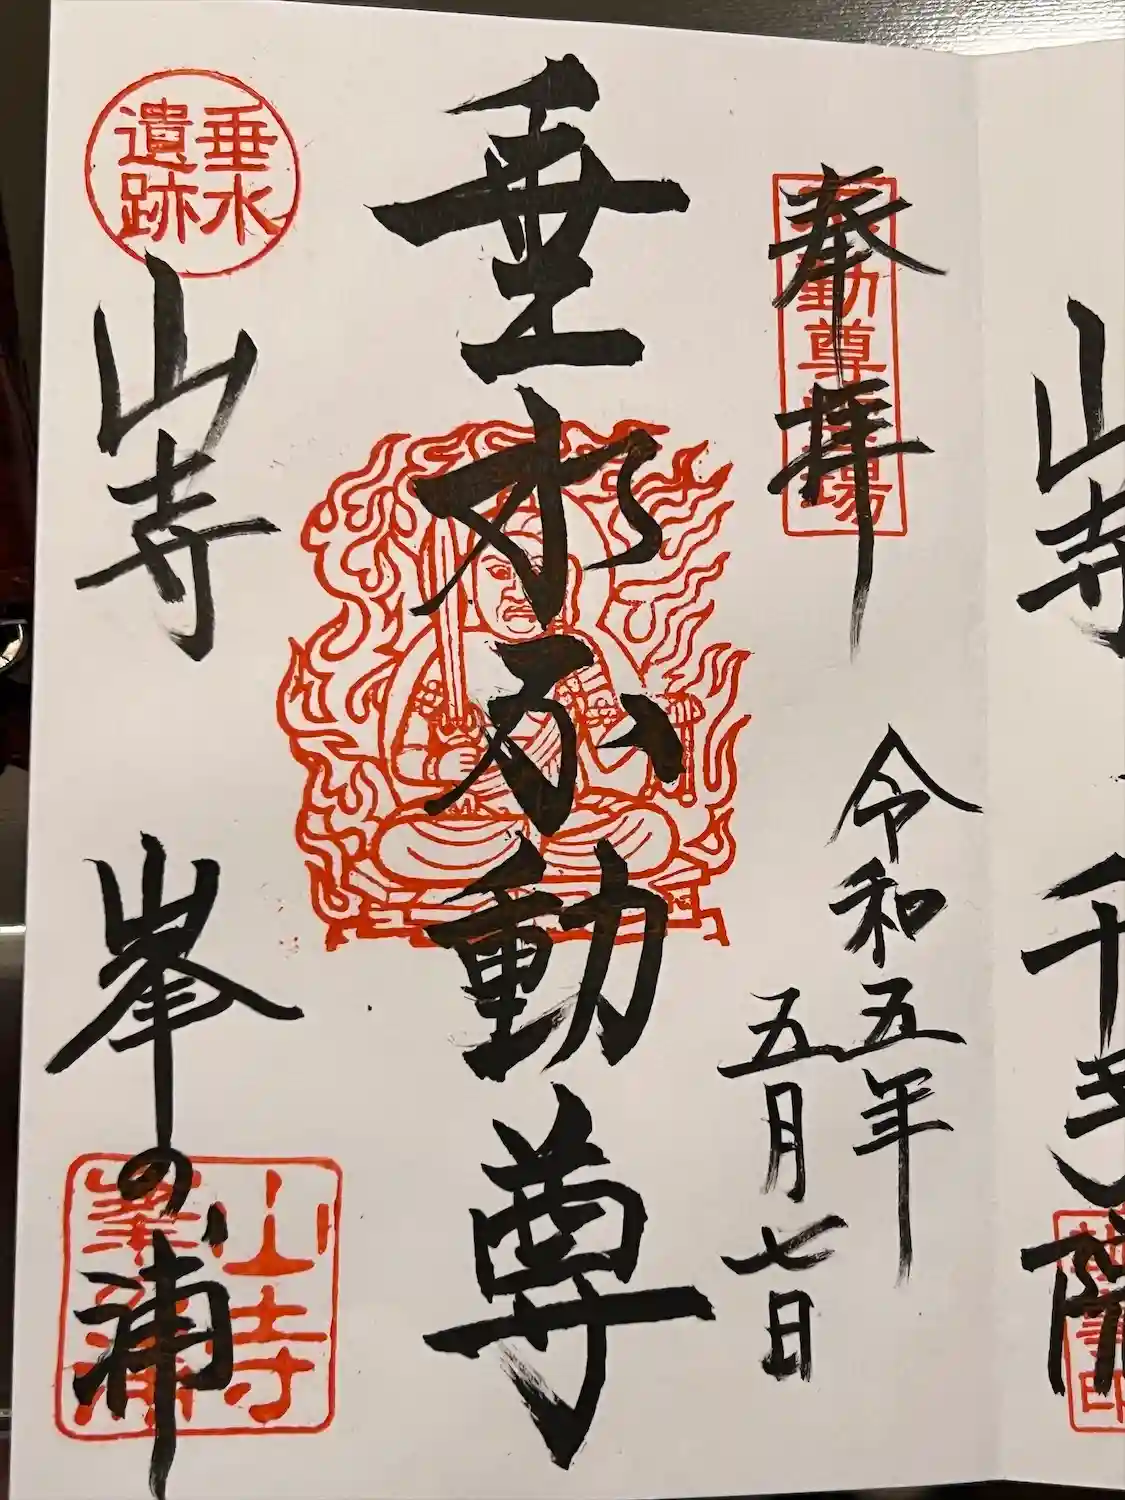 奉拝
令和五年
五月七日
垂水不動尊
垂水
遺跡
山寺
峯の浦
山寺
峯の浦
山寺
千手院